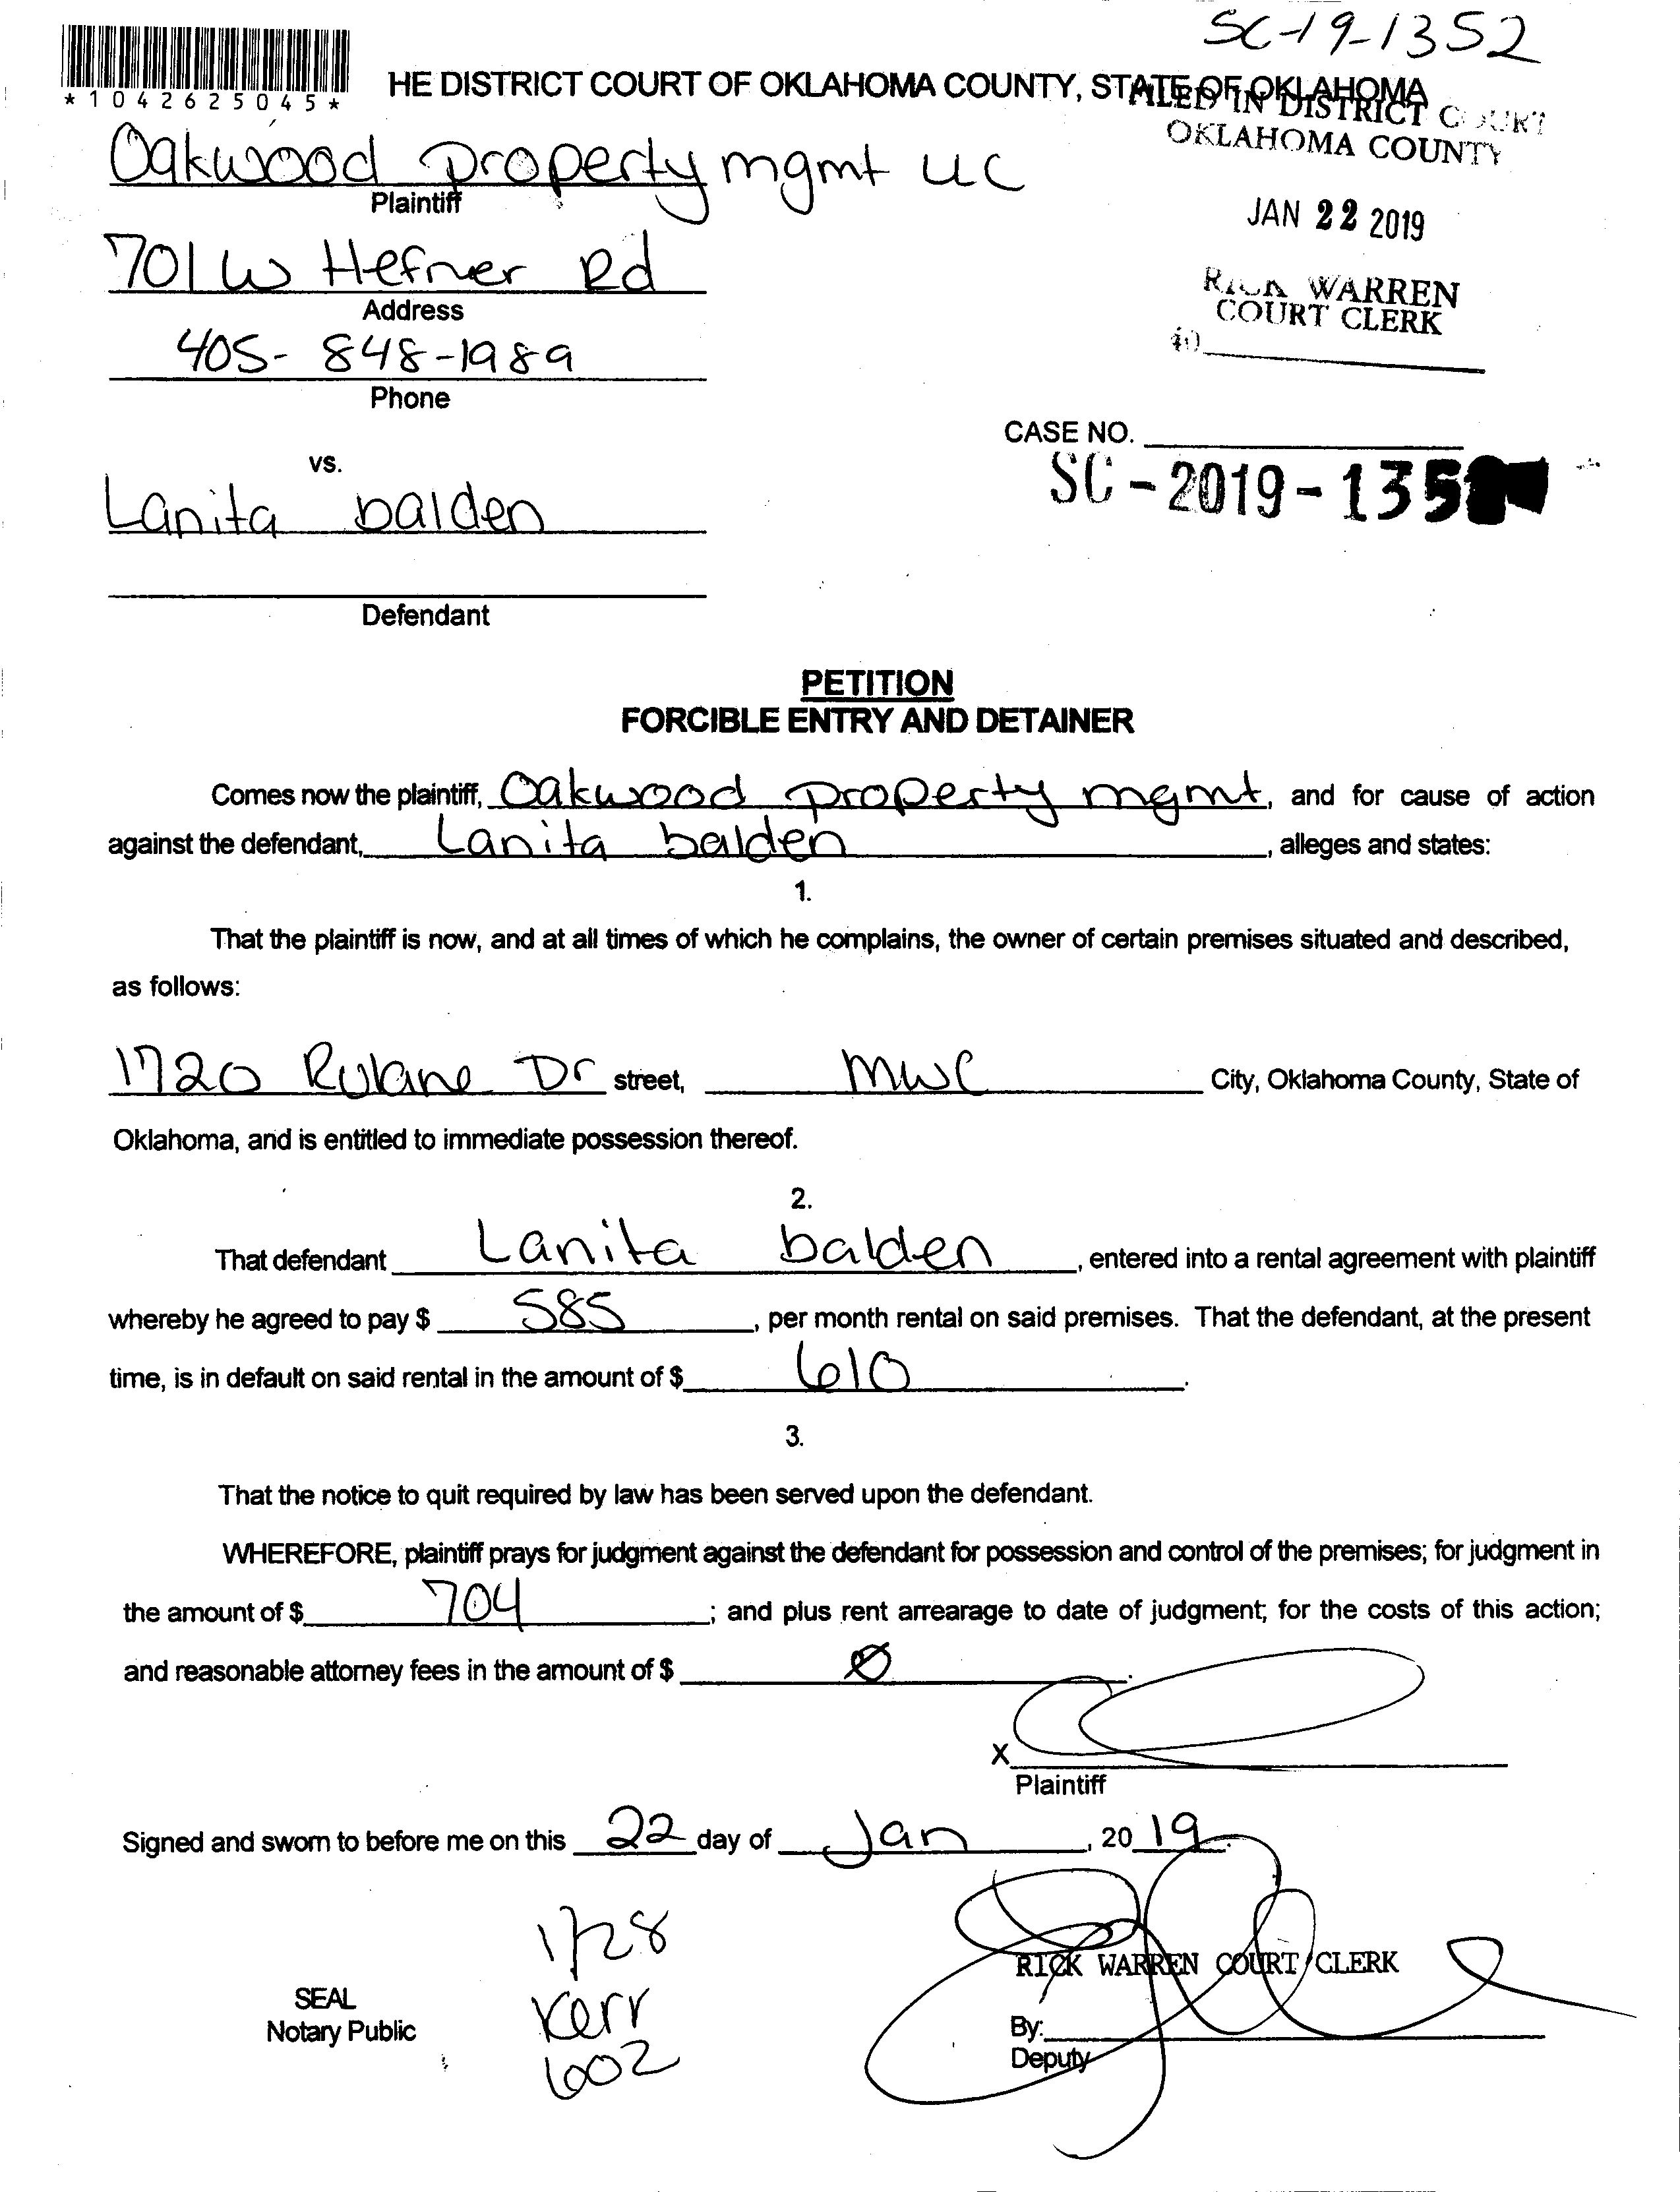 SC-19-1352
*1042625045*
HE DISTRICT COURT OF OKLAHOMA COUNTY, STATE OF OKLAHOMA
FILED IN DISTRICT COURT
OKLAHOMA COUNTY
Oakwood property mgmt LLC
Plaintiff
JAN 22 2019
701 W Hefner Rd
Address
RICK WARREN
COURT CLERK
40
405-848-1989
Phone
CASE NO.
SC-2019-135
vs.
Lanita balden
Defendant
PETITION
FORCIBLE ENTRY AND DETAINER
Comes now the plaintiff, Oakwood property mgmt, and for cause of action
against the defendant, Lanita balden, alleges and states:
1.
That the plaintiff is now, and at all times of which he complains, the owner of certain premises situated and described,
as follows:
1720 Rulane Dr street, MWC City, Oklahoma County, State of
Oklahoma, and is entitled to immediate possession thereof.
2.
That defendant Lanita balden, entered into a rental agreement with plaintiff
whereby he agreed to pay $ 585, per month rental on said premises. That the defendant, at the present
time, is in default on said rental in the amount of $ 610.
3.
That the notice to quit required by law has been served upon the defendant.
WHEREFORE, plaintiff prays for judgment against the defendant for possession and control of the premises; for judgment in
the amount of $ 704; and plus rent arrearage to date of judgment; for the costs of this action;
and reasonable attorney fees in the amount of $ Ø.
X
Plaintiff
Signed and sworn to before me on this 22 day of Jan, 2019.
1/28
RICK WARREN COURT CLERK
SEAL
Notary Public
Kerr
602
By:
Deputy